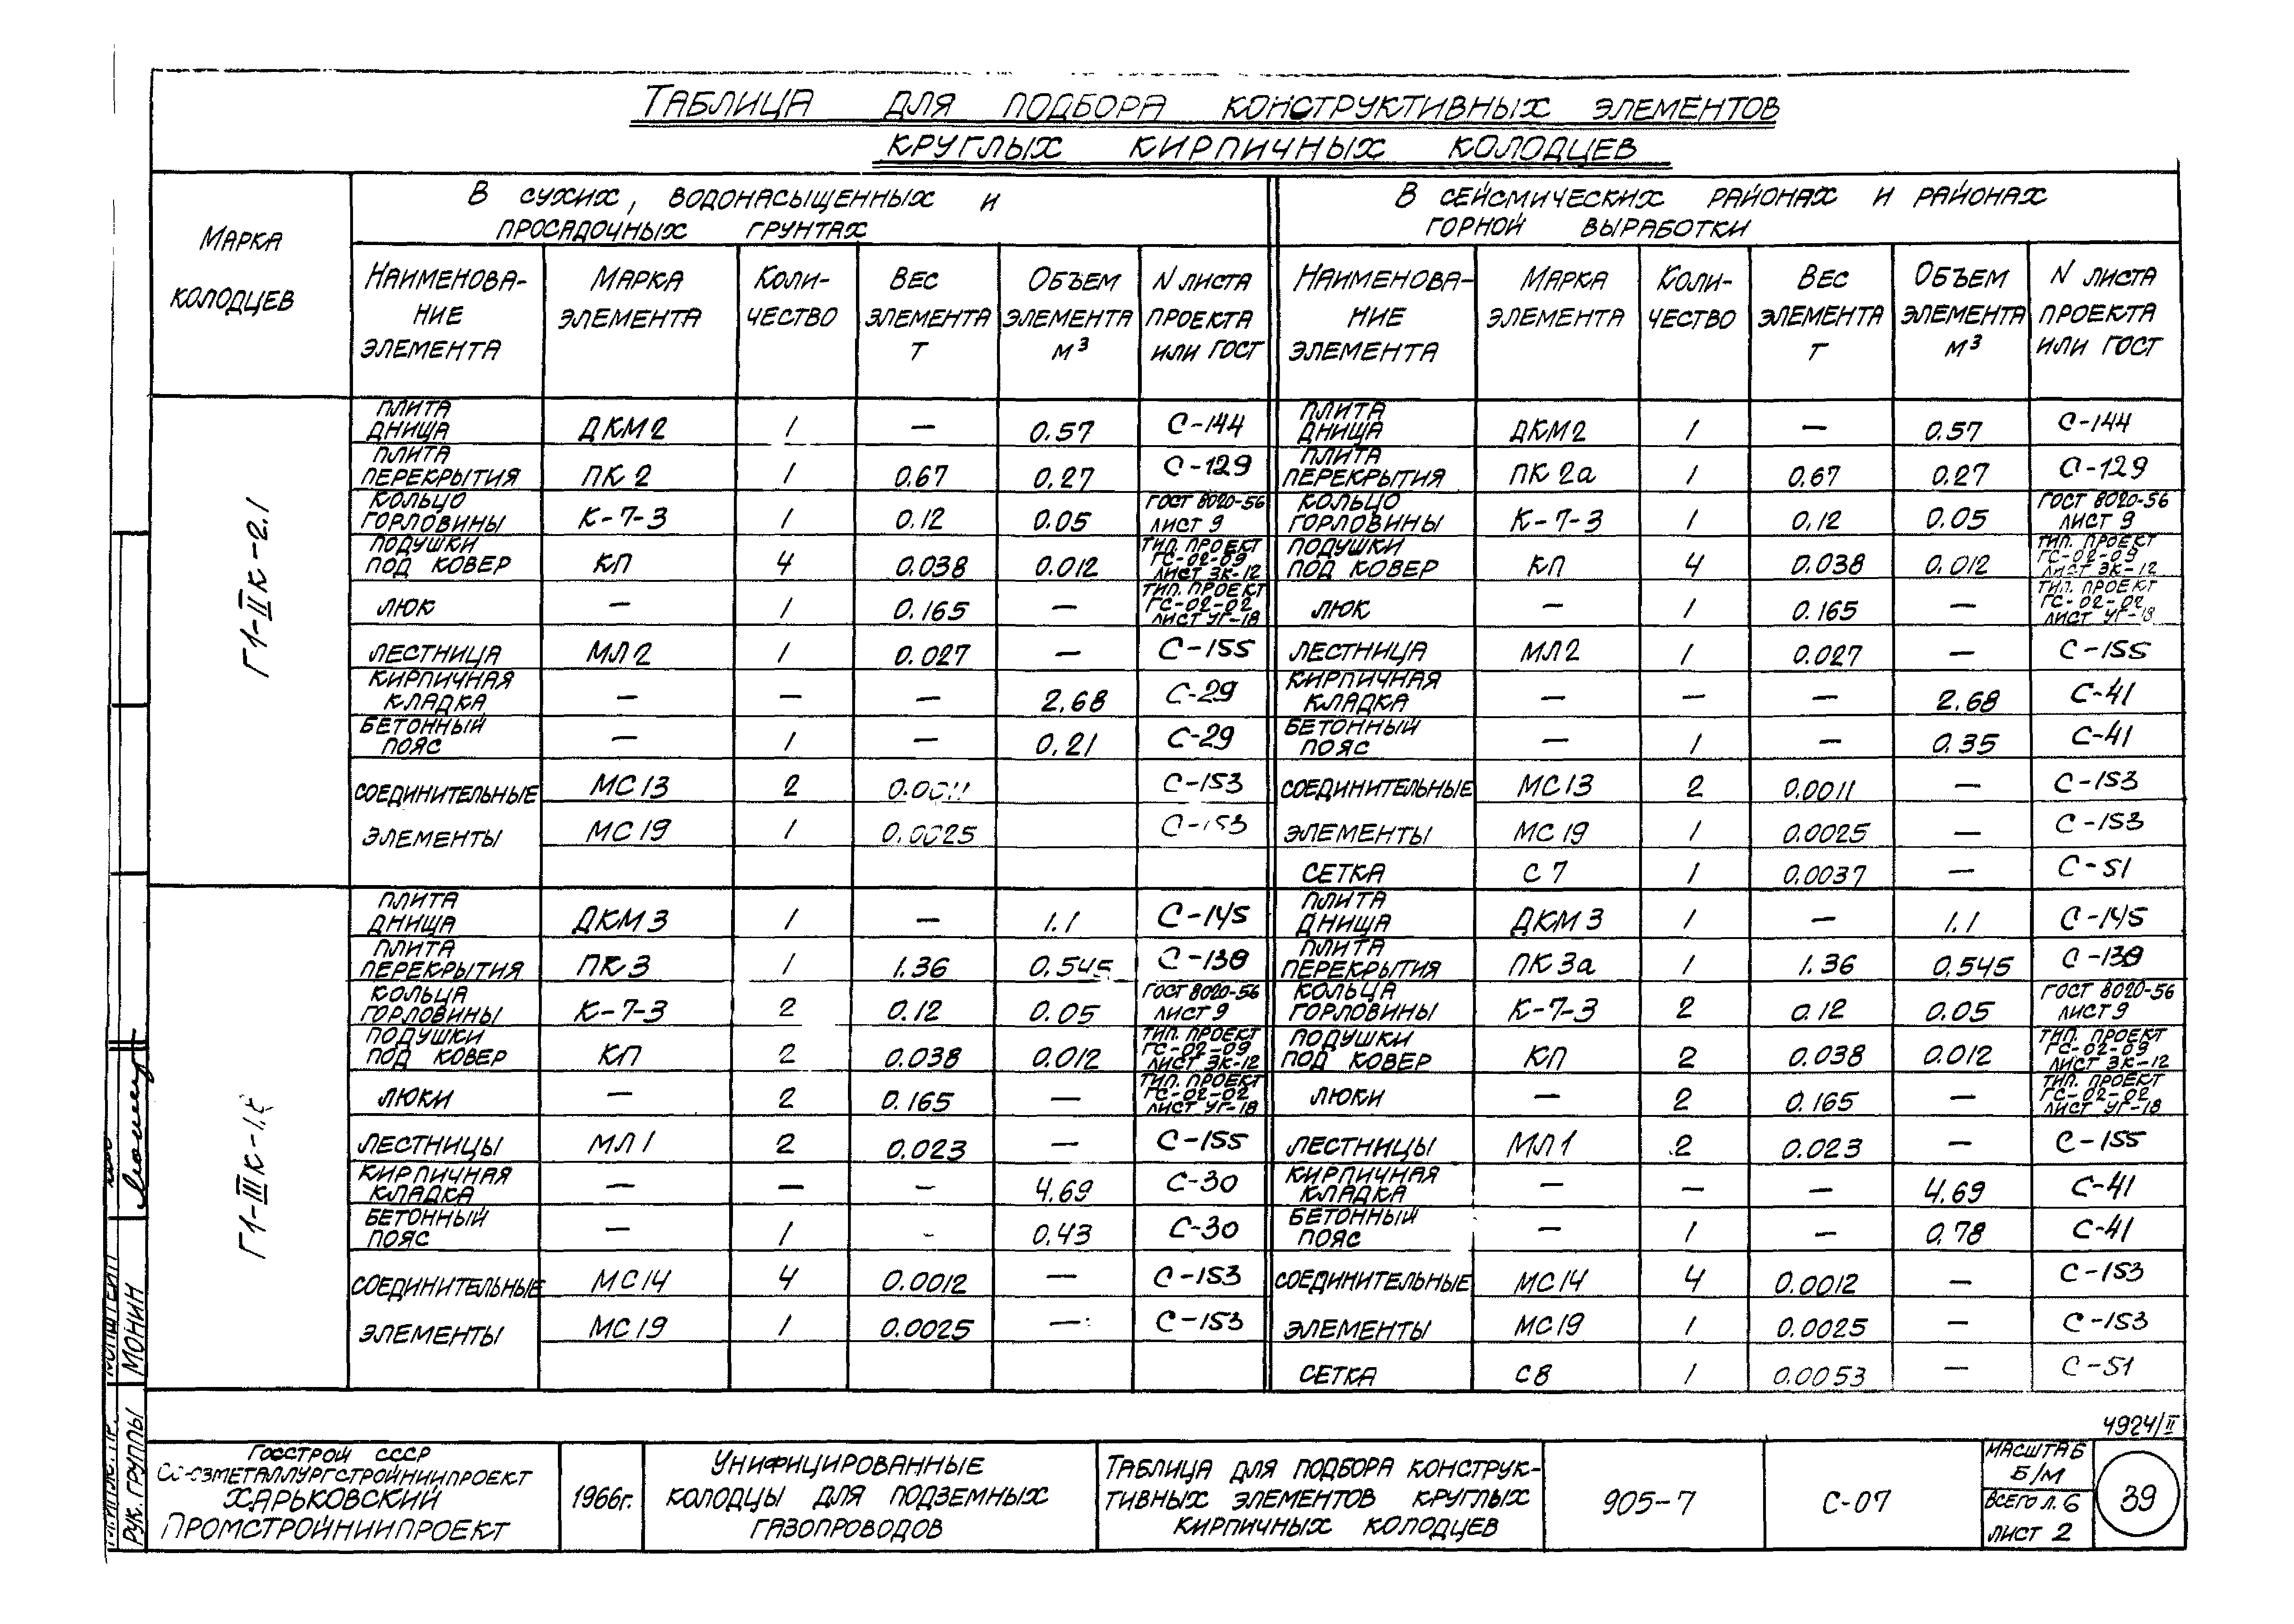 ТАБЛИЦА ДЛЯ ПОДБОРА КОНСТРУКТИВНЫХ ЭЛЕМЕНТОВ
КРУГЛЫХ КИРПИЧНЫХ КОЛОДЦЕВ
МАРКА КОЛОДЦЕВ
В СУХИХ, ВОДОНАСЫЩЕННЫХ И
ПРОСАДОЧНЫХ ГРУНТАХ
В СЕЙСМИЧЕСКИХ РАЙОНАХ И РАЙОНАХ
ГОРНОЙ ВЫРАБОТКИ
НАИМЕНОВА-НИЕ ЭЛЕМЕНТА МАРКА ЭЛЕМЕНТА КОЛИ-ЧЕСТВО ВЕС ЭЛЕМЕНТА Т ОБЪЕМ ЭЛЕМЕНТА М³ N ЛИСТА ПРОЕКТА ИЛИ ГОСТ НАИМЕНОВА-НИЕ ЭЛЕМЕНТА МАРКА ЭЛЕМЕНТА КОЛИ-ЧЕСТВО ВЕС ЭЛЕМЕНТА Т ОБЪЕМ ЭЛЕМЕНТА М³ N ЛИСТА ПРОЕКТА ИЛИ ГОСТ
Г1-IIК-2.1
ПЛИТА ДНИЩА ДКМ2 1 — 0.57 С-144 ПЛИТА ДНИЩА ДКМ2 1 — 0.57 С-144
ПЛИТА ПЕРЕКРЫТИЯ ПК2 1 0.67 0.27 С-129 ПЛИТА ПЕРЕКРЫТИЯ ПК 2а 1 0.67 0.27 С-129
КОЛЬЦО ГОРЛОВИНЫ К-7-3 1 0.12 0.05 ГОСТ 8020-56 ЛИСТ 9 КОЛЬЦО ГОРЛОВИНЫ К-7-3 1 0.12 0.05 ГОСТ 8020-56 ЛИСТ 9
ПОДУШКИ ПОД КОВЕР КП 4 0.038 0.012 ТИП. ПРОЕКТ ГС-02-09 ЛИСТ ЭК-12 ПОДУШКИ ПОД КОВЕР КП 4 0.038 0.012 ТИП. ПРОЕКТ ГС-02-09 ЛИСТ ЭК-12
ЛЮК — 1 0.165 — ТИП. ПРОЕКТ ГС-02-02 ЛИСТ УГ-18 ЛЮК — 1 0.165 — ТИП. ПРОЕКТ ГС-02-02 ЛИСТ УГ-18
ЛЕСТНИЦА МЛ2 1 0.027 — С-155 ЛЕСТНИЦА МЛ2 1 0.027 — С-155
КИРПИЧНАЯ КЛАДКА — — — 2.68 С-29 КИРПИЧНАЯ КЛАДКА — — — 2.68 С-41
БЕТОННЫЙ ПОЯС — 1 — 0.21 С-29 БЕТОННЫЙ ПОЯС — 1 — 0.35 С-41
СОЕДИНИТЕЛЬНЫЕ МС13 2 0.0011 С-153 СОЕДИНИТЕЛЬНЫЕ МС13 2 0.0011 — С-153
ЭЛЕМЕНТЫ МС19 1 0.0025 С-153 ЭЛЕМЕНТЫ МС19 1 0.0025 — С-153
СЕТКА С7 1 0.0037 — С-51
Г1-IIIК-1.
ПЛИТА ДНИЩА ДКМ3 1 — 1.1 С-145 ПЛИТА ДНИЩА ДКМ3 1 — 1.1 С-145
ПЛИТА ПЕРЕКРЫТИЯ ПК3 1 1.36 0.545 ПЛИТА ПЕРЕКРЫТИЯ ПК 3а 1 1.36 0.545
КОЛЬЦА ГОРЛОВИНЫ К-7-3 2 0.12 0.05 ГОСТ 8020-56 ЛИСТ 9 КОЛЬЦА ГОРЛОВИНЫ К-7-3 2 0.12 0.05 ГОСТ 8020-56 ЛИСТ 9
ПОДУШКИ ПОД КОВЕР КП 2 0.038 0.012 ТИП. ПРОЕКТ ГС-02-09 ЛИСТ ЭК-12 ПОДУШКИ ПОД КОВЕР КП 2 0.038 0.012 ТИП. ПРОЕКТ ГС-02-09 ЛИСТ ЭК-12
ЛЮКИ — 2 0.165 — ТИП. ПРОЕКТ ГС-02-02 ЛИСТ УГ-18 ЛЮКИ — 2 0.165 — ТИП. ПРОЕКТ ГС-02-02 ЛИСТ УГ-18
ЛЕСТНИЦЫ МЛ1 2 0.023 — С-155 ЛЕСТНИЦЫ МЛ1 2 0.023 — С-155
КИРПИЧНАЯ КЛАДКА — — — 4.69 С-30 КИРПИЧНАЯ КЛАДКА — — — 4.69 С-41
БЕТОННЫЙ ПОЯС — 1 - 0.43 С-30 БЕТОННЫЙ ПОЯС — 1 — 0.78 С-41
СОЕДИНИТЕЛЬНЫЕ МС14 4 0.0012 — С-153 СОЕДИНИТЕЛЬНЫЕ МС14 4 0.0012 — С-153
ЭЛЕМЕНТЫ МС19 1 0.0025 — С-153 ЭЛЕМЕНТЫ МС19 1 0.0025 — С-153
СЕТКА С8 1 0.0053 — С-51
РУК. ГРУППЫ МОНИН
4924/II
ГОССТРОЙ СССР
СОЮЗМЕТАЛЛУРГСТРОЙНИИПРОЕКТ
ХАРЬКОВСКИЙ
ПРОМСТРОЙНИИПРОЕКТ
1966г.
УНИФИЦИРОВАННЫЕ
КОЛОДЦЫ ДЛЯ ПОДЗЕМНЫХ
ГАЗОПРОВОДОВ
ТАБЛИЦА ДЛЯ ПОДБОРА КОНСТРУК-
ТИВНЫХ ЭЛЕМЕНТОВ КРУГЛЫХ
КИРПИЧНЫХ КОЛОДЦЕВ
905-7
С-07
МАСШТАБ
Б/М
ВСЕГО Л. 6
ЛИСТ 2
39